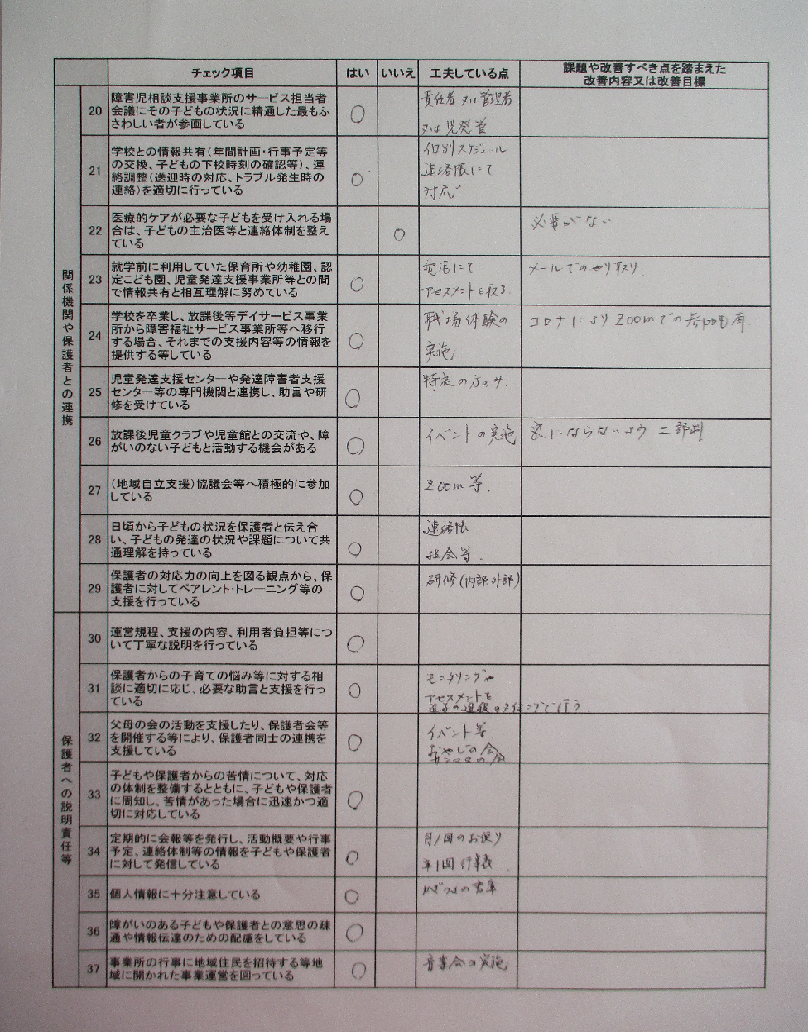 チェック項目 はい いいえ 工夫している点 課題や改善すべき点を踏まえた
改善内容又は改善目標
関係機関や保護者との連携
20 障害児相談支援事業所のサービス担当者
会議にその子どもの状況に精通した最もふ
さわしい者が参画している
○ 責任者又は管理者
又は児発管
21 学校との情報共有(年間計画・行事予定等
の交換、子どもの下校時刻の確認等)、連
絡調整(送迎時の対応、トラブル発生時の
連絡)を適切に行っている
○ 個別スケジュール
連絡帳にて
対応
22 医療的ケアが必要な子どもを受け入れる場
合は、子どもの主治医等と連絡体制を整え
ている
○ 必要がない
23 就学前に利用していた保育所や幼稚園、認
定こども園、児童発達支援事業所等との間
で情報共有と相互理解に努めている
○ 電話にて
アセスメントを取る
メールでのやり取り
24 学校を卒業し、放課後等デイサービス事業
所から障害福祉サービス事業所等へ移行
する場合、それまでの支援内容等の情報を
提供する等している
○ 職場体験の
実施
コロナによりZoomでの参加も有
25 児童発達支援センターや発達障害者支援
センター等の専門機関と連携し、助言や研
修を受けている
○ 特定の方のみ
26 放課後児童クラブや児童館との交流や、障
がいのない子どもと活動する機会がある
○ イベントの実施
27 (地域自立支援)協議会等へ積極的に参加
している
○ Zoom等
28 日頃から子どもの状況を保護者と伝え合
い、子どもの発達の状況や課題について共
通理解を持っている
○ 連絡帳
29 保護者の対応力の向上を図る観点から、保
護者に対してペアレント・トレーニング等の
支援を行っている
○ 研修(内部外部)
保護者への説明責任等
30 運営規程、支援の内容、利用者負担等につ
いて丁寧な説明を行っている
○
31 保護者からの子育ての悩み等に対する相
談に適切に応じ、必要な助言と支援を行っ
ている
○ モニタリングや
アセスメントを
32 父母の会の活動を支援したり、保護者会等
を開催する等により、保護者同士の連携を
支援している
○ イベント等
おやじの会
33 子どもや保護者からの苦情について、対応
の体制を整備するとともに、子どもや保護者
に周知し、苦情があった場合に迅速かつ適
切に対応している
○
34 定期的に会報等を発行し、活動概要や行事
予定、連絡体制等の情報を子どもや保護者
に対して発信している
○ 月1回のお便り
年1回行事表
35 個人情報に十分注意している
○
36 障がいのある子どもや保護者との意思の疎
通や情報伝達のための配慮をしている
○
37 事業所の行事に地域住民を招待する等地
域に開かれた事業運営を図っている
○ 音楽会の実施